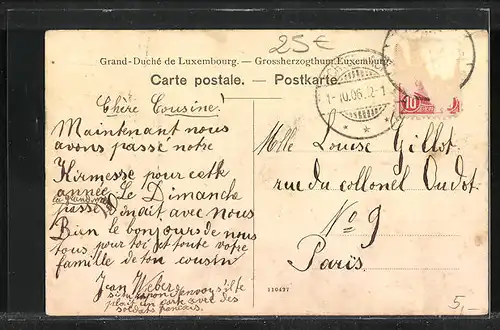 25€
Grand-Duché de Luxembourg. — Grossherzogthum Luxemburg.
Carte postale. — Postkarte.
1-10.06.12-1
10
Chère Cousine!
Maintenant nous
avons passé notre
Kirmesse pour cette
année. Le Dimanche
passé avec nous
Bien le bonjours de nous
tous pour toi et toute votre
famille de ton cousin
Jean Weber
Mlle Louise Gillot.
rue du collonel Oudot.
No 9
Paris.
110437
5,-